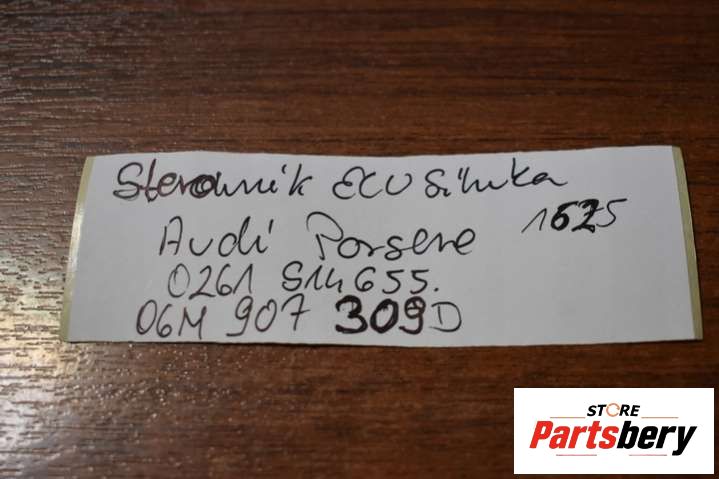 Sterownik ECU Silnika
1625
Audi Porsche
0261 S14 655.
06M 907 309D
STORE
Partsbery